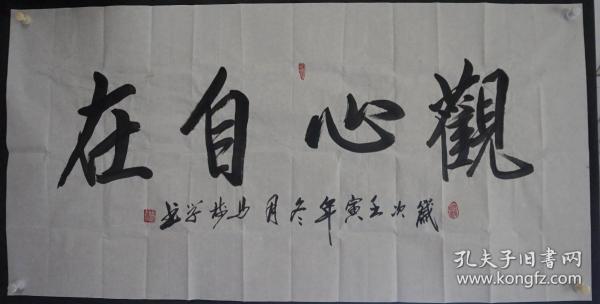 觀心自在
歲次壬寅年冬月馬
孔夫子旧書网
www.kongfz.com